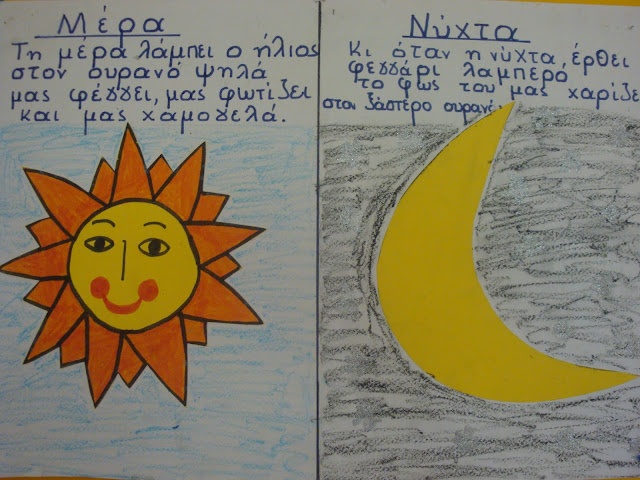 Μέρα
Τη μέρα λάμπει ο ήλιος
στον ουρανό ψηλά
μας φέγγει, μας φωτίζει
και μας χαμογελά.
Νύχτα
Κι όταν η νύχτα έρθει
φεγγάρι λαμπερό
το φως του μας χαρίζει
στον ξάστερο ουρανό.